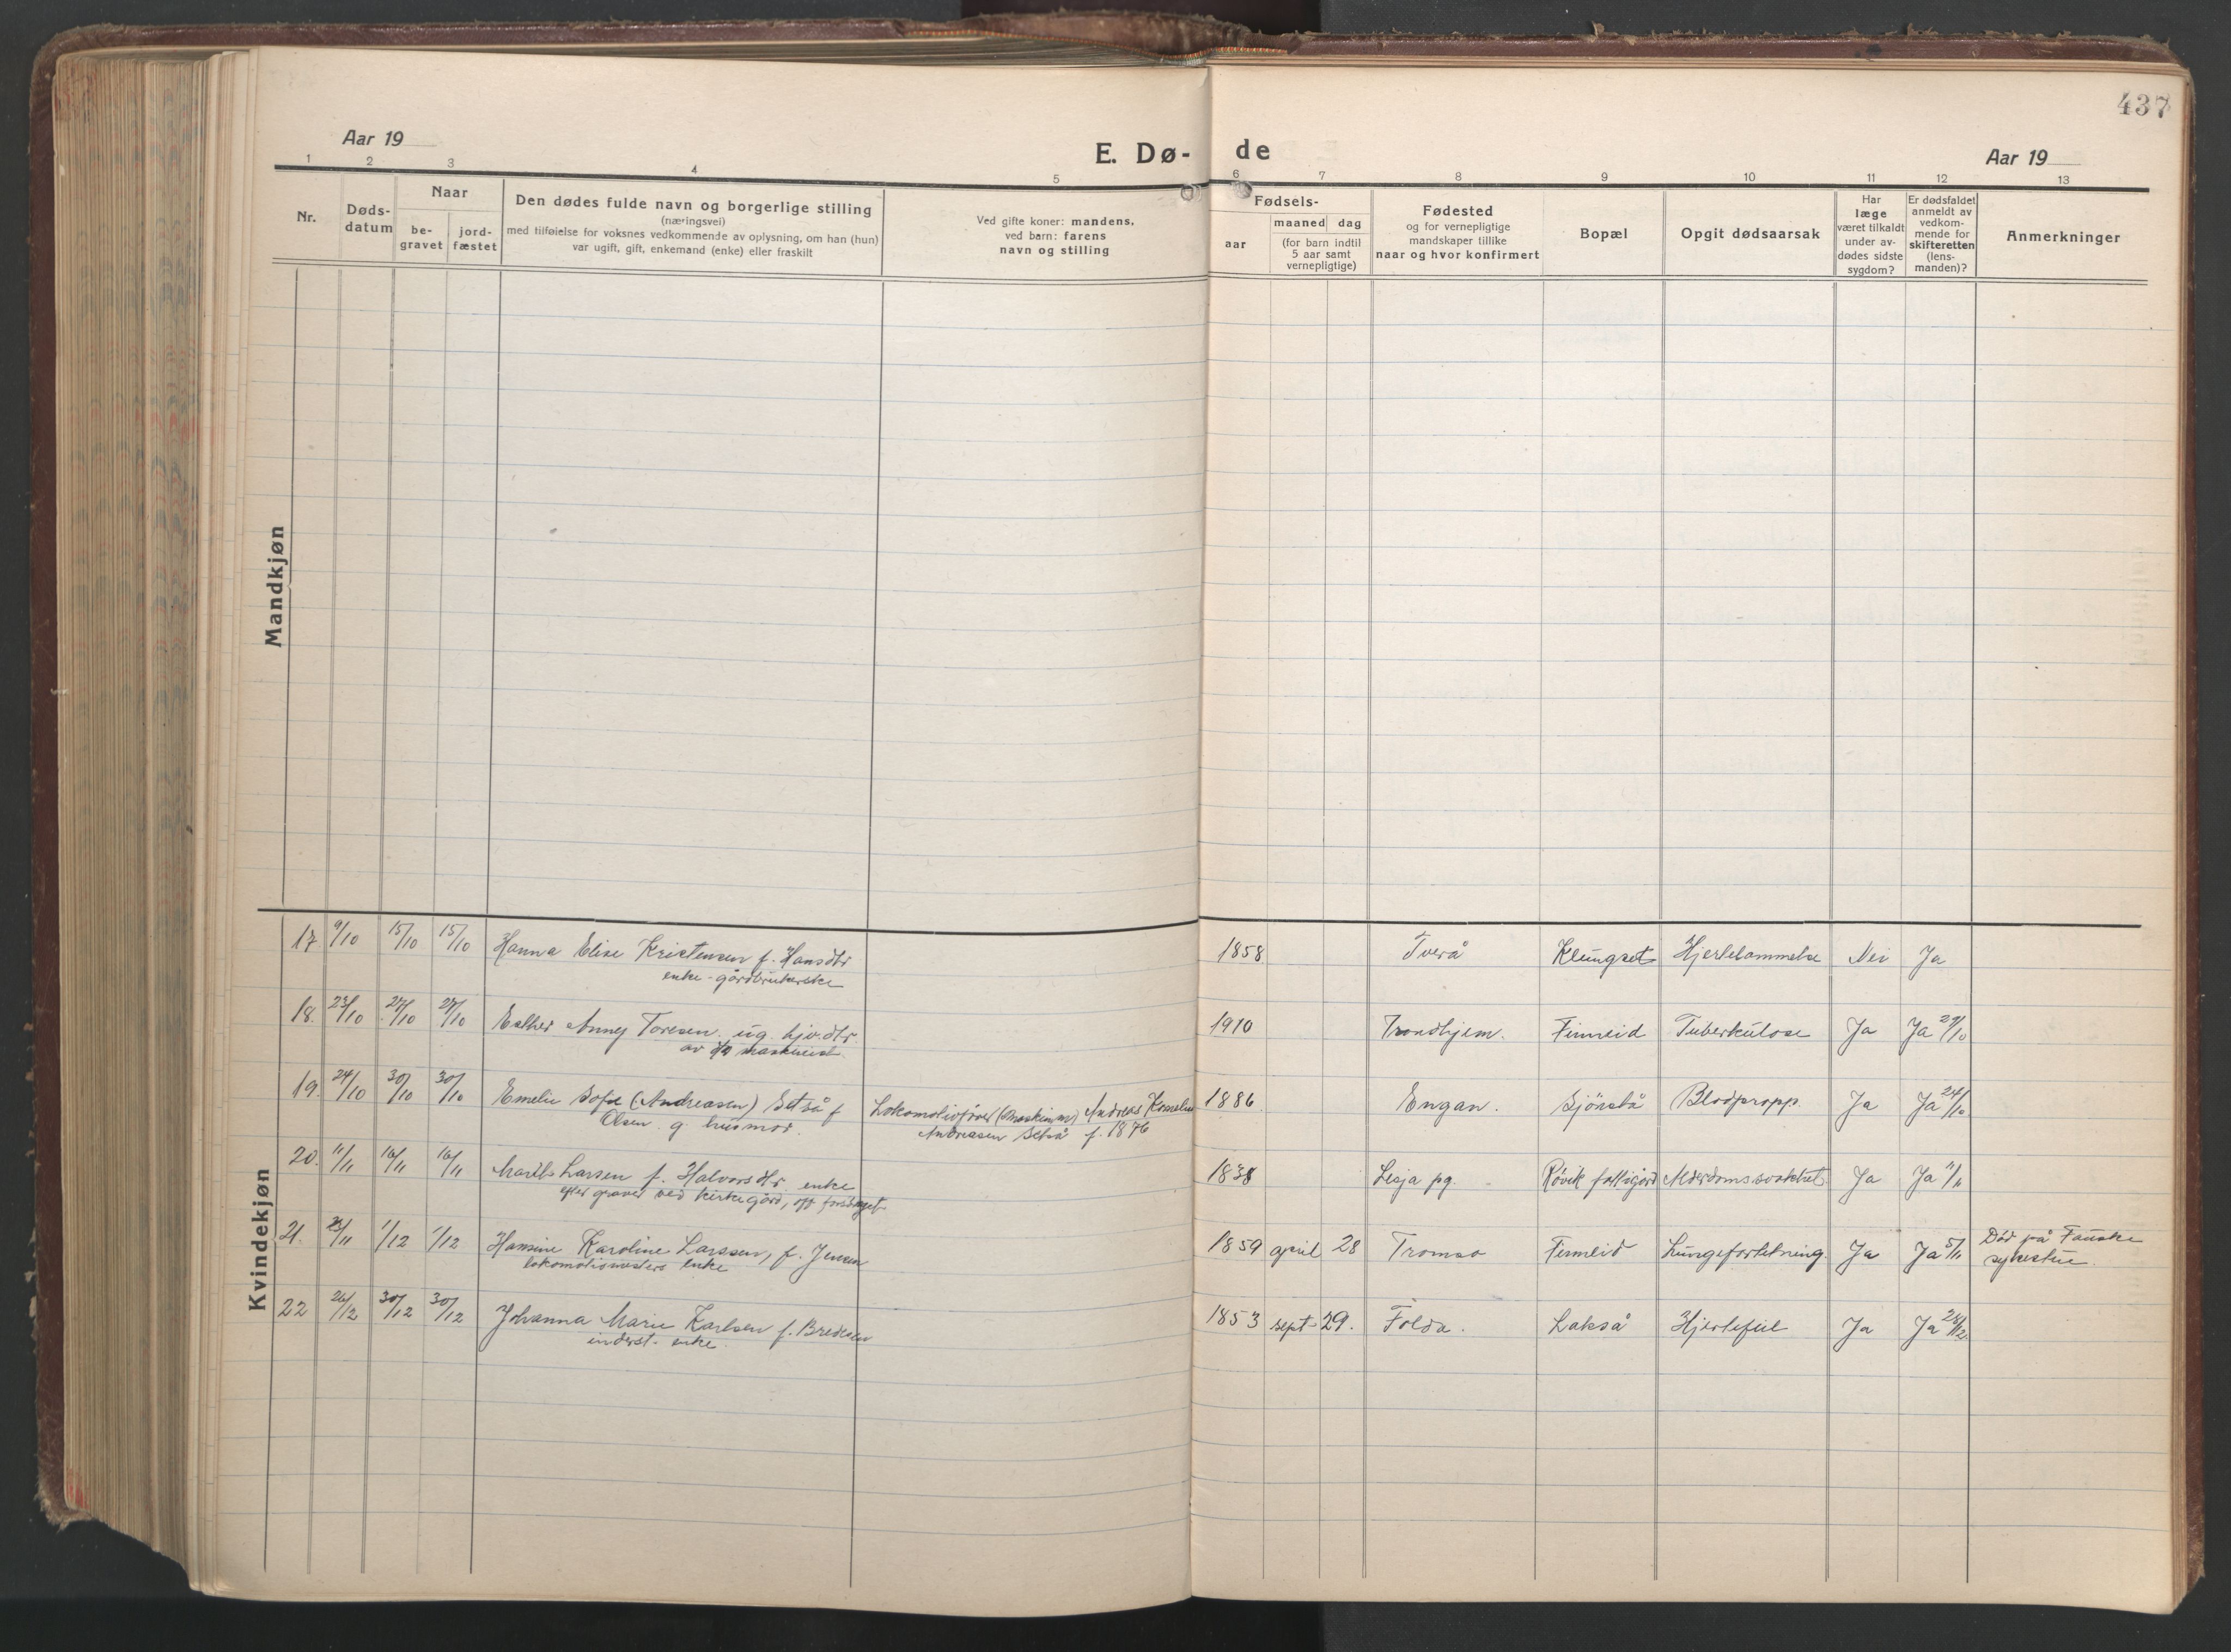 437
Aar 19
E. Dø-
de
Aar 19
1 2 3 4 5 6 7 8 9 10 11 12 13
Nr.
Døds-
datum
Naar
be-
gravet
jord-
fæstet
Den dødes fulde navn og borgerlige stilling
(næringsvei)
med tilføielse for voksnes vedkommende av oplysning, om han (hun)
var ugift, gift, enkemand (enke) eller fraskilt
Ved gifte koner: mandens,
ved barn: farens
navn og stilling
Fødsels-
aar
maaned dag
(for barn indtil
5 aar samt
vernepligtige)
Fødested
og for vernepligtige
mandskaper tillike
naar og hvor konfirmert
Bopæl
Opgit dødsaarsak
Har
læge
været tilkaldt
under av-
dødes sidste
sygdom?
Er dødsfaldet
anmeldt av
vedkom-
mende for
skifteretten
(lens-
manden)?
Anmerkninger
Mandkjøn
Kvindekjøn
17 9/10 15/10 15/10 Hanna Elise Kristensen f. Hansdtr 1858 Tverå Klungset Hjertelammelse Nei Ja
enke - gårdbrukerske
18. 23/10 27/10 27/10 Esther Anny Toresen ug. hjv. dtr 1910 Trondhjem. Finneid Tuberkulose Ja Ja 29/10
av maskinist
19. 24/10 30/10 30/10 Emelie Sofie (Andreasen) Setså f Lokomotivfører (maskinm) Andreas Kornelius 1886 Engan. Sjönstå Blodpropp. Ja Ja 24/10
Olsen g. husmor. Andreasen Setså f. 1876
20. 11/11 16/11 16/11 Marit Larsen f. Halvorsdtr. enke 1838 Lesja pg. Røvik fattigård Alderdomssvakhet Ja Ja 11/11
efter graver ved kirkegård, off forsørget
21. 25/11 1/12 1/12 Hansine Karoline Larssen, f. Jensen 1859 april 28 Tromsø Finneid Lungefortetning. Ja Ja 5/11 Död på Fauske
lokomotivmesters enke sykestue.
22 26/12 30/12 30/12 Johanna Marie Karlsen f. Bredesen 1853 sept- 29. Folda. Lakså Hjertefeil Ja Ja 28/12
inderst - enke.